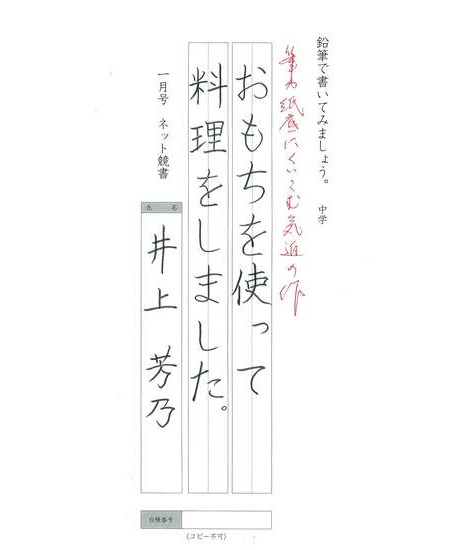 鉛筆で書いてみましょう。 中学
筆力紙底にくいこむ気迫の作
おもちを使って
料理をしました。
一月号 ネット競書
氏名
井上 芳乃
台帳番号
(コピー不可)